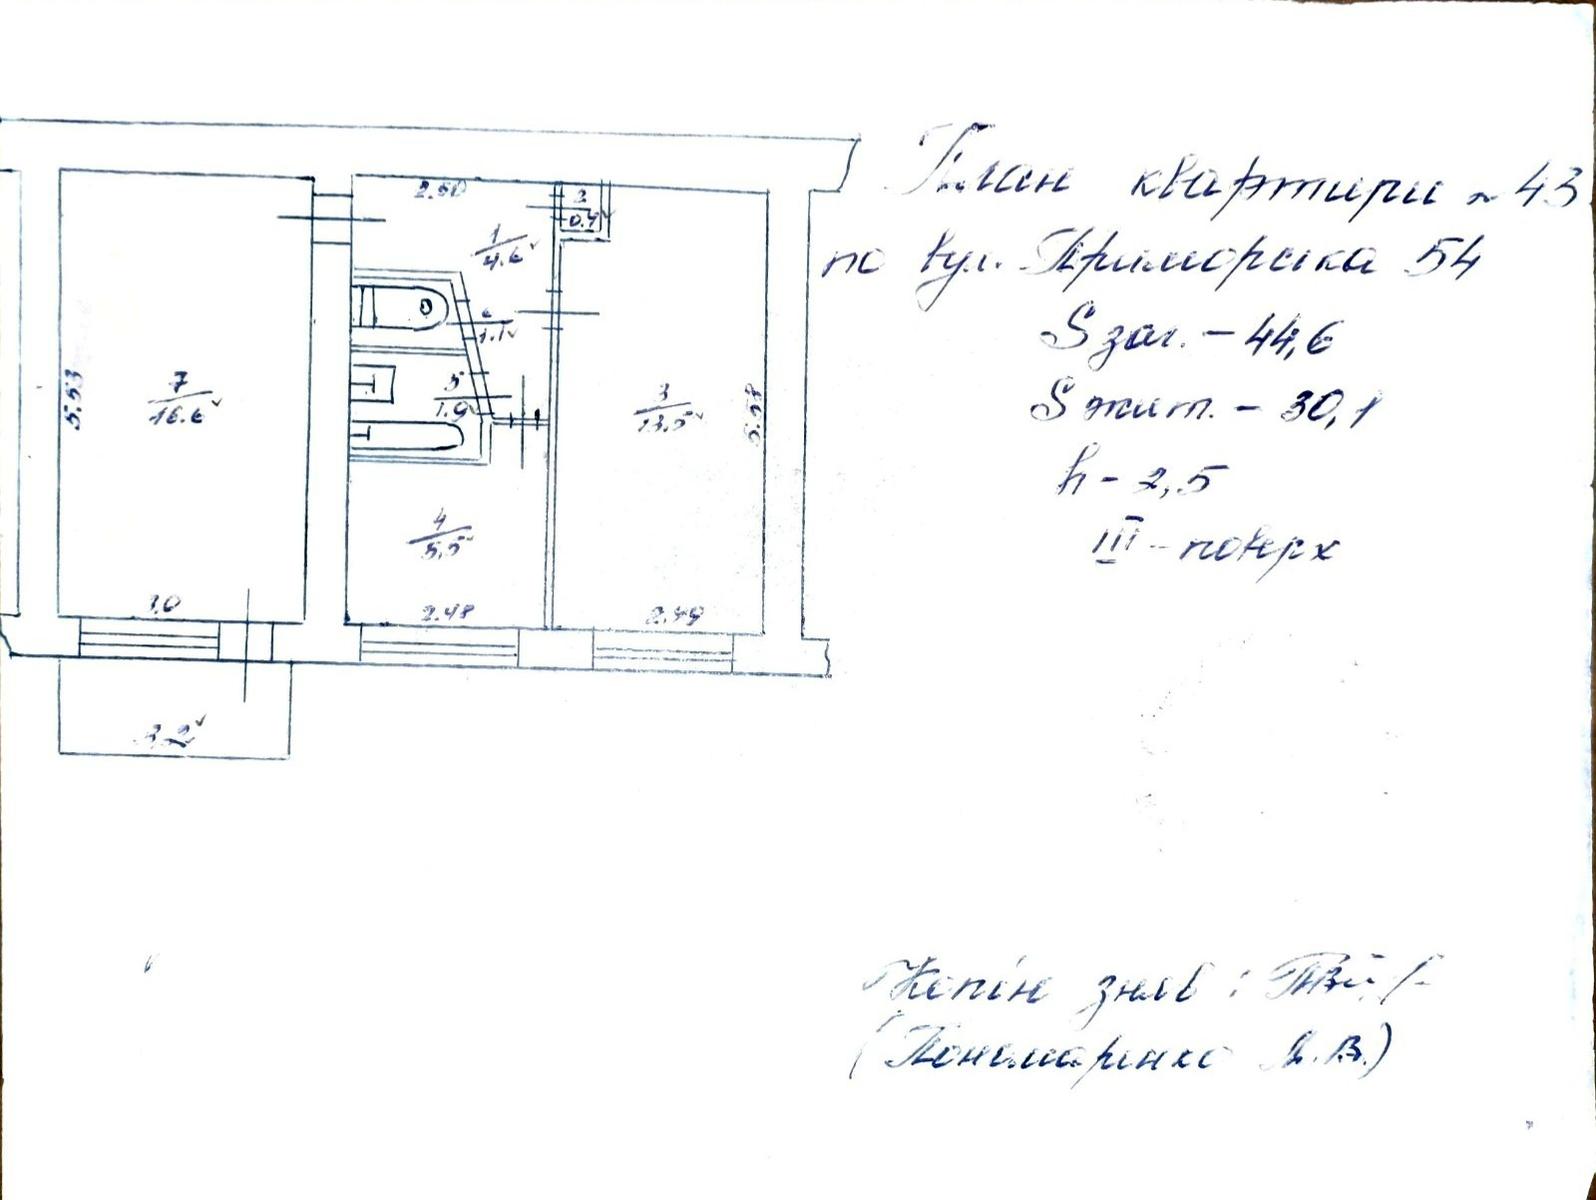 План квартири № 43
по вул. Приморська 54
S заг. – 44,6
S жит. – 30,1
h – 2,5
III – поверх
2.50
2
0.4
1
4.6
6
1.1
5.53
7
16.6
5
1.9
3
13.5
5.58
4
5.5
3.0
2.48
2.49
3.2
Копію зняв:
(Пономаренко В.)